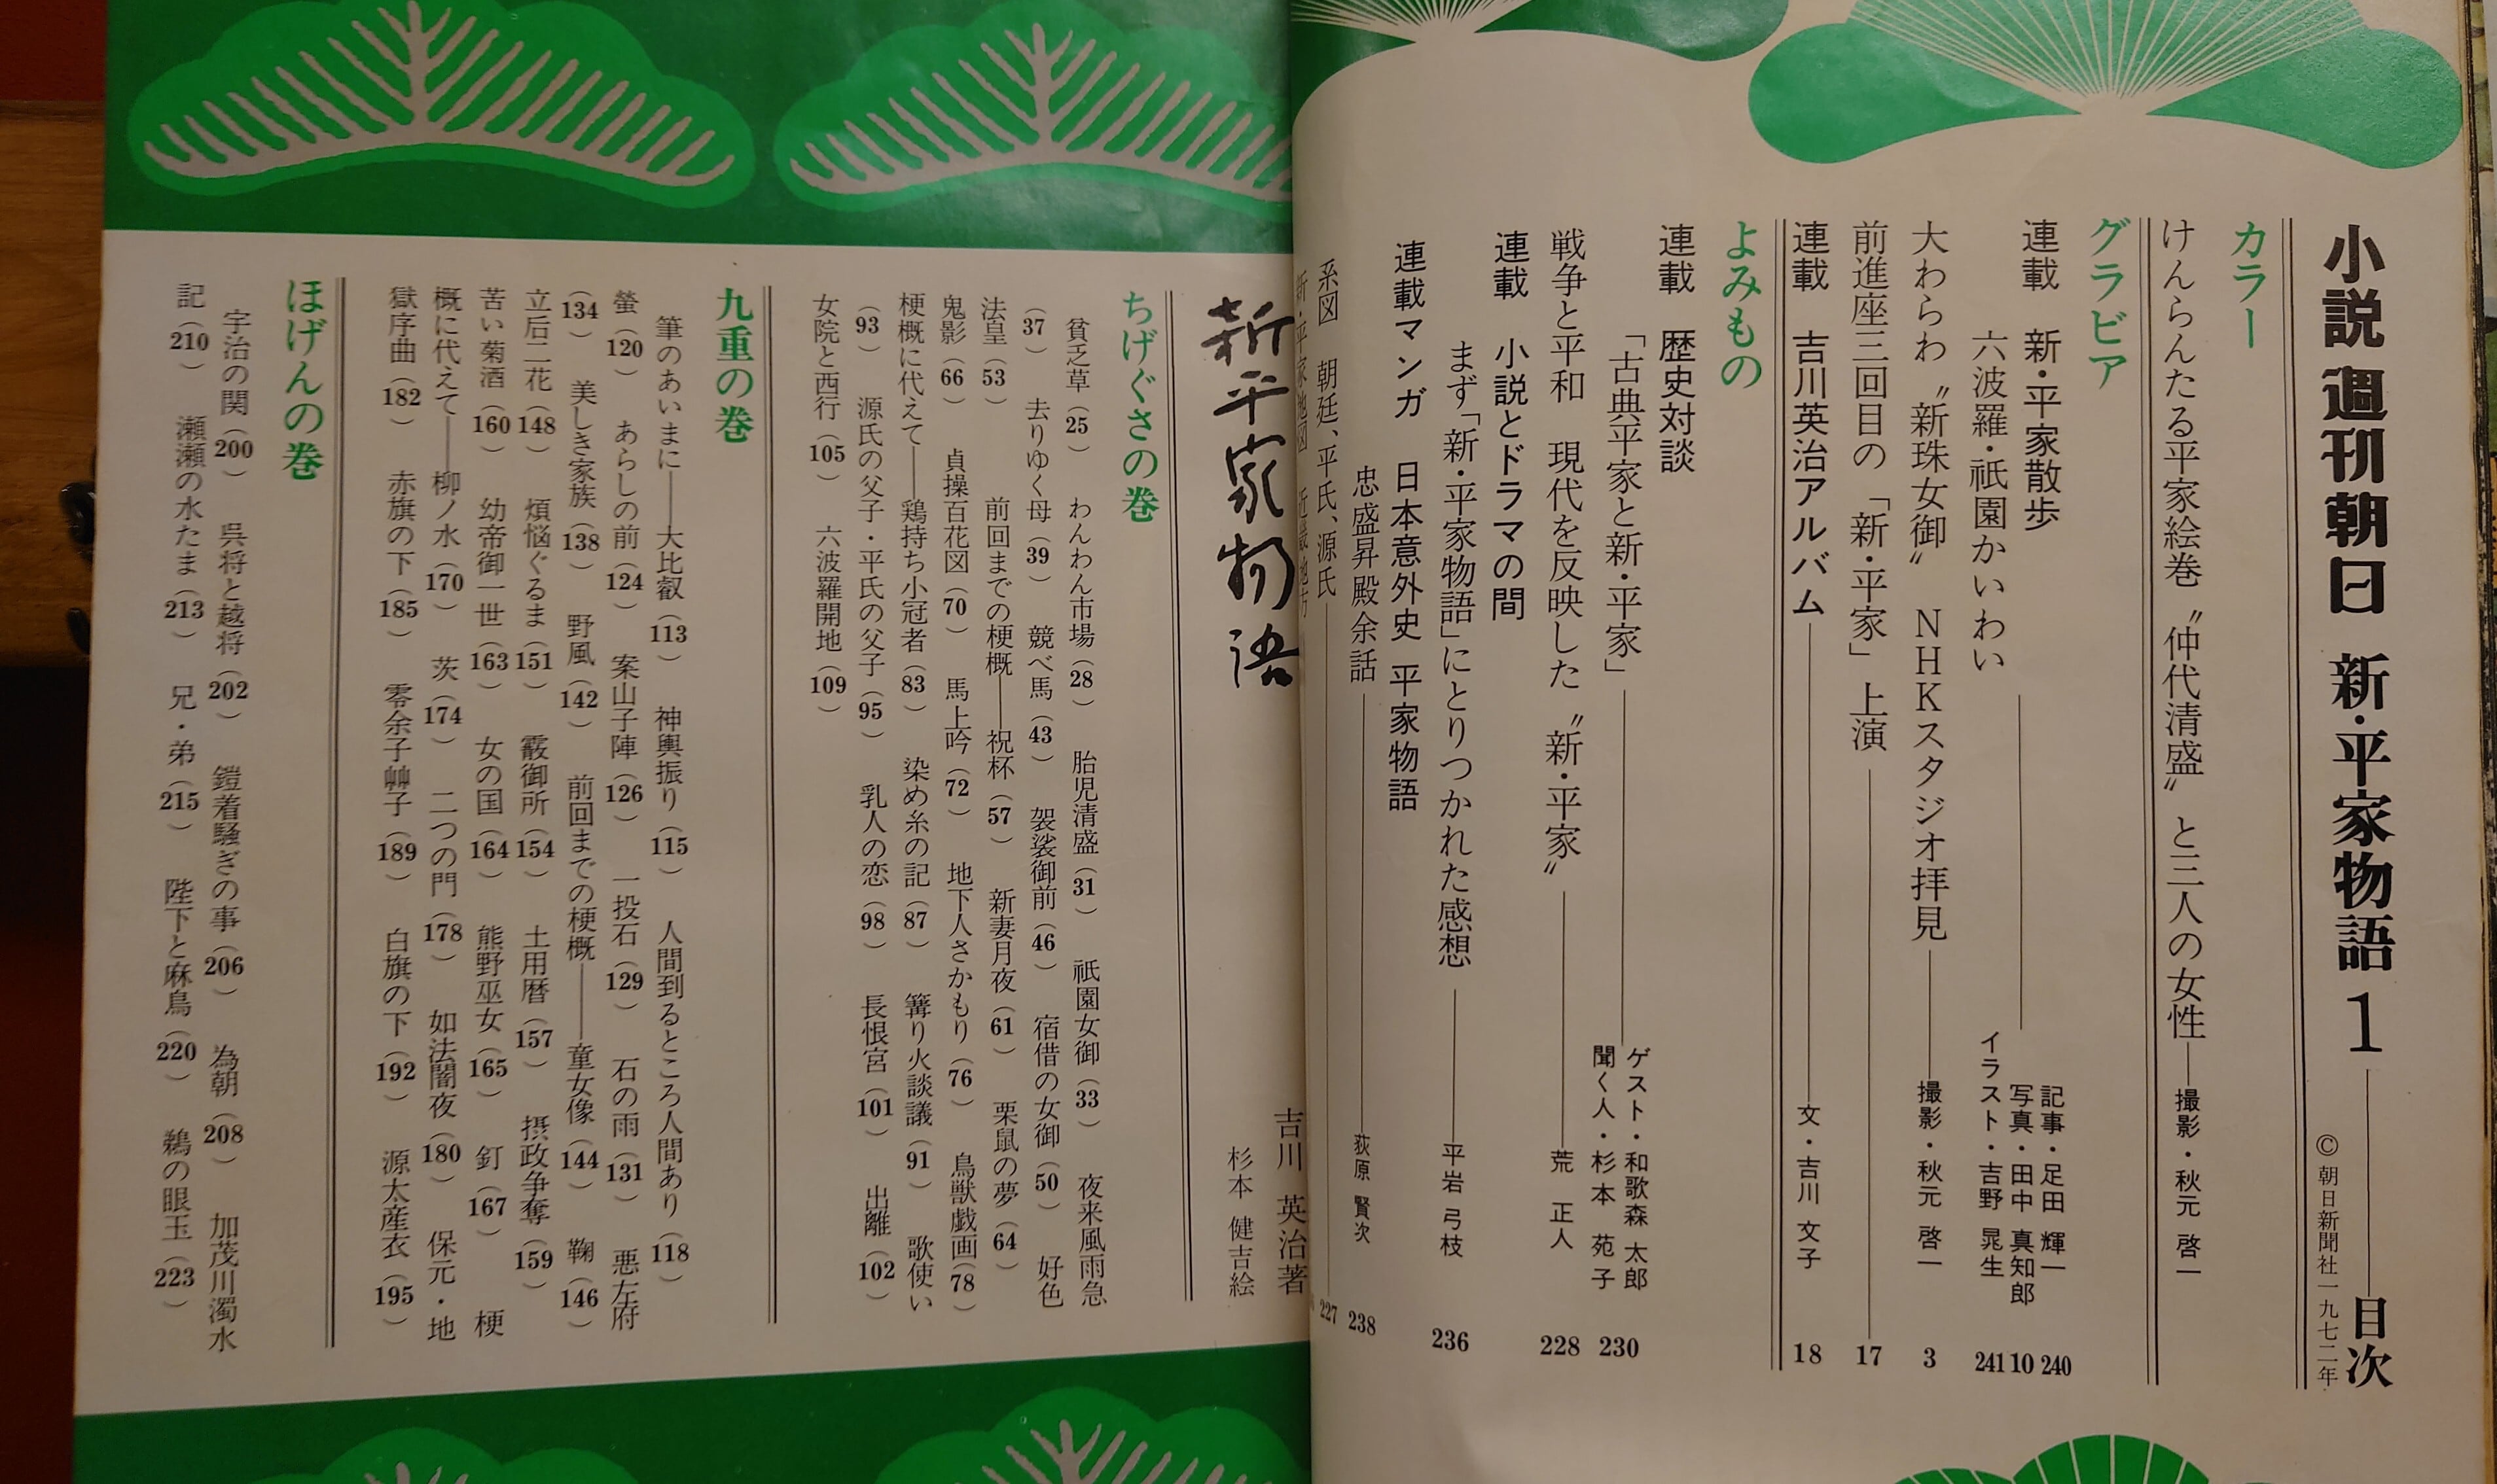 小説 週刊朝日 新・平家物語 1 目次
© 朝日新聞社一九七二年
カラー
けんらんたる平家絵巻 〝仲代清盛〟と三人の女性 撮影・秋元 啓一
グラビア
連載 新・平家散歩 記事・足田 輝一 240
六波羅・祇園かいわい 写真・田中 真知郎 10
イラスト・吉野 晃生 241
大わらわ〝新珠女御〟 NHKスタジオ拝見 撮影・秋元 啓一 3
前進座三回目の「新・平家」上演 17
連載 吉川英治アルバム 文・吉川 文子 18
よみもの
連載 歴史対談
「古典平家と新・平家」 ゲスト・和歌森 太郎 230
聞く人・杉本 苑子
戦争と平和 現代を反映した〝新・平家〟 荒 正人 228
連載 小説とドラマの間
まず「新・平家物語」にとりつかれた感想 平岩 弓枝 236
連載マンガ 日本意外史 平家物語
忠盛昇殿余話 荻原 賢次 238
系図 朝廷、平氏、源氏 227
新・平家地図 近畿地方
新平家物語
吉川 英治著
杉本 健吉絵
ちげぐさの巻
貧乏草(25) わんわん市場(28) 胎児清盛(31) 祇園女御(33) 夜来風雨急
(37) 去りゆく母(39) 競べ馬(43) 袈裟御前(46) 宿借の女御(50) 好色
法皇(53) 前回までの梗概――祝杯(57) 新妻月夜(61) 栗鼠の夢(64)
鬼影(66) 貞操百花図(70) 馬上吟(72) 地下人さかもり(76) 鳥獣戯画(78)
梗概に代えて――鶏持ち小冠者(83) 染め糸の記(87) 篝り火談議(91) 歌使い
(93) 源氏の父子・平氏の父子(95) 乳人の恋(98) 長恨宮(101) 出離(102)
女院と西行(105) 六波羅開地(109)
九重の巻
筆のあいまに――大比叡(113) 神輿振り(115) 人間到るところ人間あり(118)
螢(120) あらしの前(124) 案山子陣(126) 一投石(129) 石の雨(131) 悪左府
(134) 美しき家族(138) 野風(142) 前回までの梗概――童女像(144) 鞠(146)
立后二花(148) 煩悩ぐるま(151) 霰御所(154) 土用暦(157) 摂政争奪(159)
苦い菊酒(160) 幼帝御一世(163) 女の国(164) 熊野巫女(165) 釘(167) 梗
概に代えて――柳ノ水(170) 茨(174) 二つの門(178) 如法闇夜(180) 保元・地
獄序曲(182) 赤旗の下(185) 零余子艸子(189) 白旗の下(192) 源太産衣(195)
ほげんの巻
宇治の関(200) 呉将と越将(202) 鎧着騒ぎの事(206) 為朝(208) 加茂川濁水
記(210) 瀬瀬の水たま(213) 兄・弟(215) 陛下と麻鳥(220) 鵺の眼玉(223)